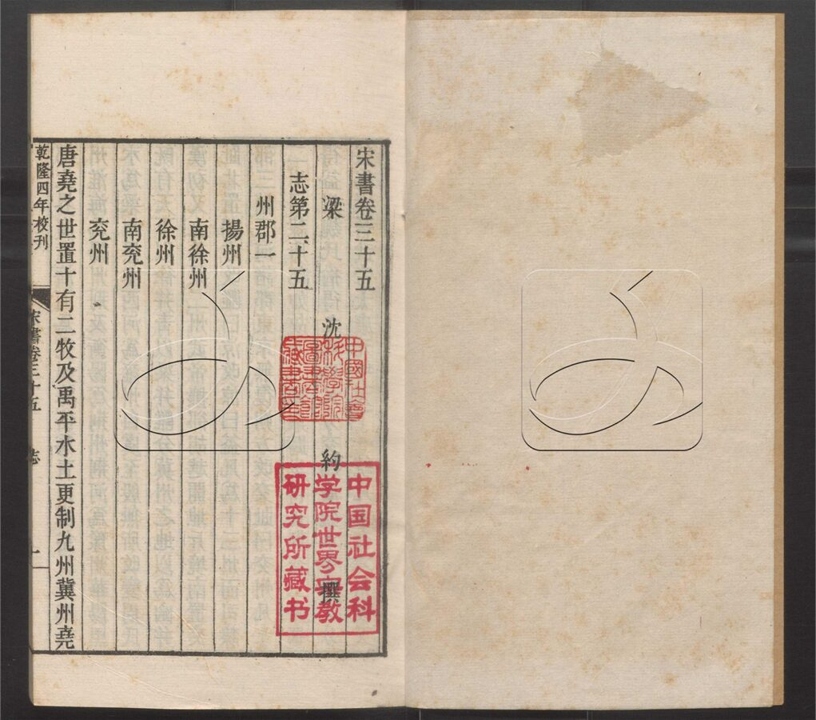 宋書卷三十五
梁 沈 約 撰
志第二十五
州郡一
揚州
南徐州
徐州
南兖州
兖州
唐堯之世置十有二牧及禹平水土更制九州冀州堯
乾隆四年校刊
宋書卷三十五 志 一
中国社会科
学院世界宗教
研究所藏书